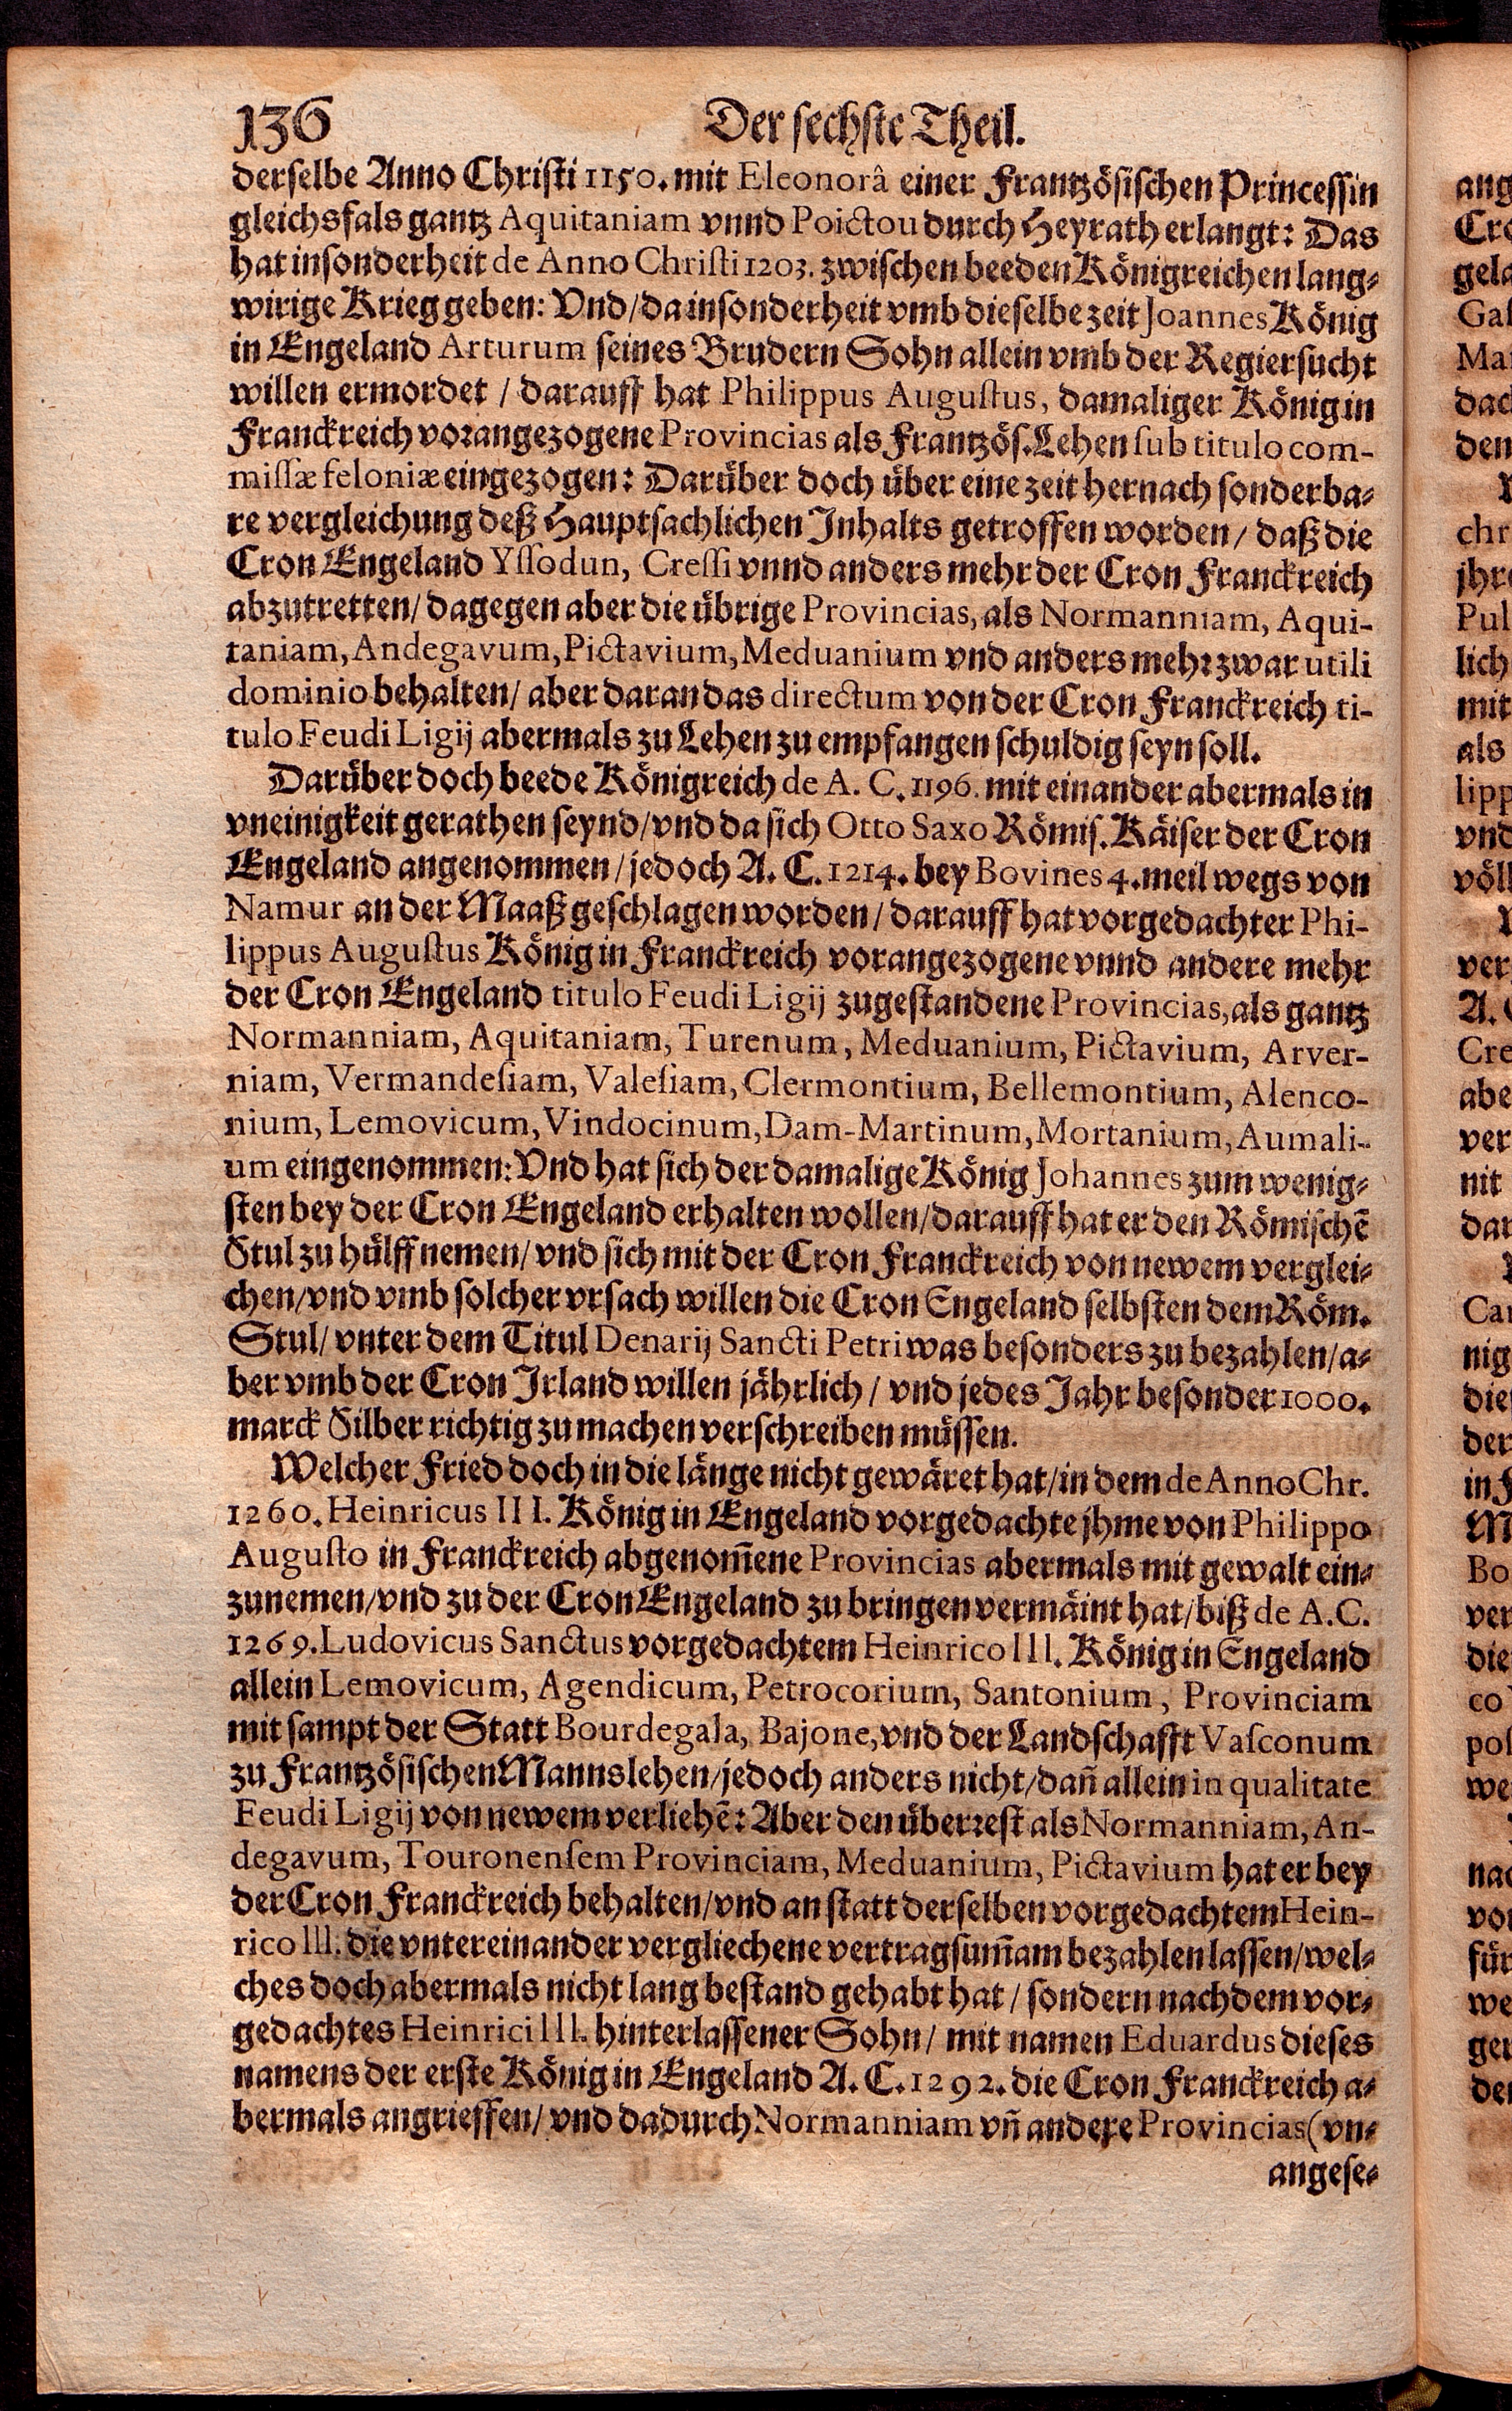 136 Der sechste Theil.
derselbe Anno Christi 1150. mit Eleonorâ einer Frantzösischen Princessin
gleichsfals gantz Aquitaniam vnnd Poictou durch Heyrath erlangt: Das
hat insonderheit de Anno Christi 1203. zwischen beeden Königreichen lang-
wirige Krieg geben: Vnd/ da insonderheit vmb dieselbe zeit Joannes König
in Engeland Arturum seines Brudern Sohn allein vmb der Regiersucht
willen ermordet / darauff hat Philippus Augustus, damaliger König in
Franckreich vorangezogene Provincias als Frantzös. Lehen sub titulo com-
missæ feloniæ eingezogen: Darüber doch über eine zeit hernach sonderba-
re vergleichung deß Hauptsachlichen Inhalts getroffen worden / daß die
Cron Engeland Yssodun, Cressi vnnd anders mehr der Cron Franckreich
abzutretten/ dagegen aber die übrige Provincias, als Normanniam, Aqui-
taniam, Andegavum, Pictavium, Meduanium vnd anders mehr zwar utili
dominio behalten/ aber daran das directum von der Cron Franckreich ti-
tulo Feudi Ligij abermals zu Lehen zu empfangen schuldig seyn soll.
Darüber doch beede Königreich de A. C. 1196. mit einander abermals in
vneinigkeit gerathen seynd/ vnd da sich Otto Saxo Römis. Käiser der Cron
Engeland angenommen / jedoch A. C. 1214. bey Bovines 4. meil wegs von
Namur an der Maaß geschlagen worden / darauff hat vorgedachter Phi-
lippus Augustus König in Franckreich vorangezogene vnnd andere mehr
der Cron Engeland titulo Feudi Ligij zugestandene Provincias, als gantz
Normanniam, Aquitaniam, Turenum, Meduanium, Pictavium, Arver-
niam, Vermandesiam, Valesiam, Clermontium, Bellemontium, Alenco-
nium, Lemovicum, Vindocinum, Dam-Martinum, Mortanium, Aumali-
um eingenommen: Vnd hat sich der damalige König Johannes zum wenig-
sten bey der Cron Engeland erhalten wollen/ darauff hat er den Römischẽ
Stul zu hülff nemen/ vnd sich mit der Cron Franckreich von newem verglei-
chen/ vnd vmb solcher vrsach willen die Cron Engeland selbsten dem Röm.
Stul/ vnter dem Titul Denarij Sancti Petri was besonders zu bezahlen/ a-
ber vmb der Cron Irland willen jährlich / vnd jedes Jahr besonder 1000.
marck Silber richtig zu machen verschreiben müssen.
Welcher Fried doch in die länge nicht gewäret hat/ in dem de Anno Chr.
1260. Heinricus III. König in Engeland vorgedachte jhme von Philippo
Augusto in Franckreich abgenom̃ene Provincias abermals mit gewalt ein-
zunemen/ vnd zu der Cron Engeland zu bringen vermäint hat/ biß de A. C.
1269. Ludovicus Sanctus vorgedachtem Heinrico III. König in Engeland
allein Lemovicum, Agendicum, Petrocorium, Santonium, Provinciam
mit sampt der Statt Bourdegala, Bajone, vnd der Landschafft Vasconum
zu Frantzösischen Mannslehen/ jedoch anders nicht/ dañ allein in qualitate
Feudi Ligij von newem verliehẽ: Aber den überrest als Normanniam, An-
degavum, Touronensem Provinciam, Meduanium, Pictavium hat er bey
der Cron Franckreich behalten/ vnd an statt derselben vorgedachtem Hein-
rico III. die vntereinander vergliechene vertragsum̃am bezahlen lassen/ wel-
ches doch abermals nicht lang bestand gehabt hat / sondern nachdem vor-
gedachtes Heinrici III. hinterlassener Sohn / mit namen Eduardus dieses
namens der erste König in Engeland A. C. 1292. die Cron Franckreich a-
bermals angrieffen/ vnd dadurch Normanniam vñ andere Provincias (vn-
angese-